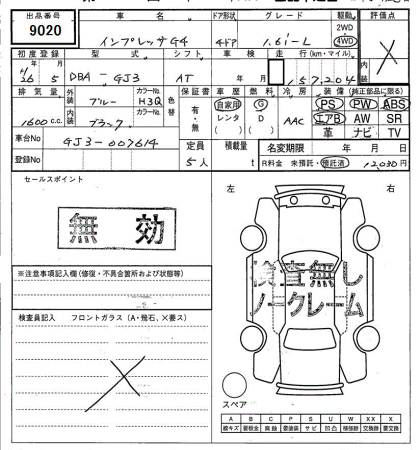 出品番号 車名 ドア形状 グレード 駆動 評価点
9020 インプレッサG4 4ドア 1.6i-L 2WD 4WD
初度登録 型式 シフト 車検 走行(km・マイル)
年 月 年 月
H26 5 DBA-GJ3 AT 157,204
排気量 外装 カラーNo 色替 保証書 車歴 燃料 冷房 装備 (純正部品に限る)
1600 c.c. ブルー H3Q 有・無 自家用 G AAC PS PW ABS
内装 カラーNo レンタ D エアB AW SR
ブラック ( ) ( ) 革 ナビ TV
車台No GJ3-007614 定員 積載量 名変期限 年 月 日
登録No 5人 t R料金 未預託・預託済 12030円
セールスポイント 左 右
無効
検査無し
ノークレーム
※注意事項記入欄(修復・不具合箇所および状態等)
検査員記入 フロントガラス(A・飛石、×要ス)
スペア
A B C P S U W X XX
線キズ 腐蝕 要塗装 サビ 凹凸 補修跡 交換跡